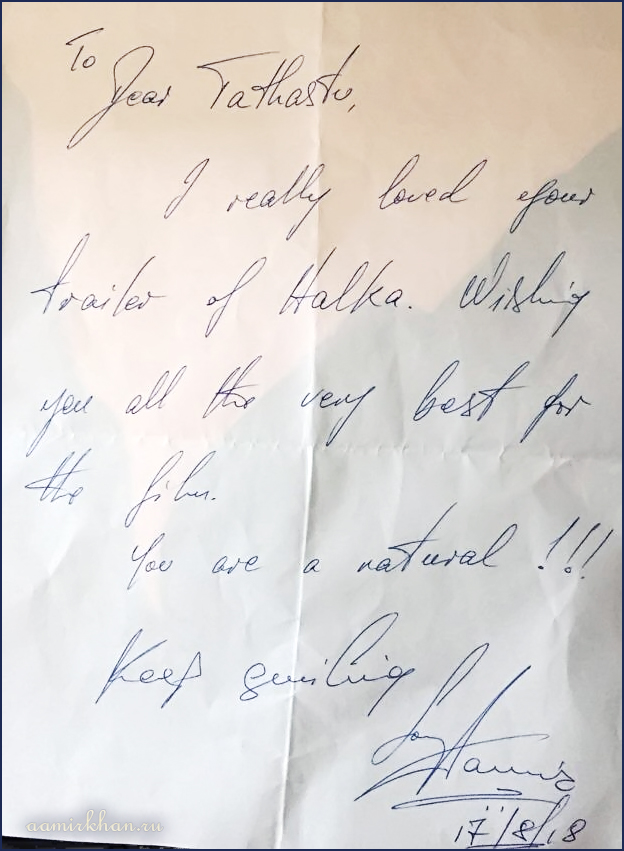 To
Dear Tathastu,
I really loved your
trailer of Halka. Wishing
you all the very best for
the film.
You are a natural !!!
Keep smiling
Love
Aamir
17/8/18
aamirkhan.ru